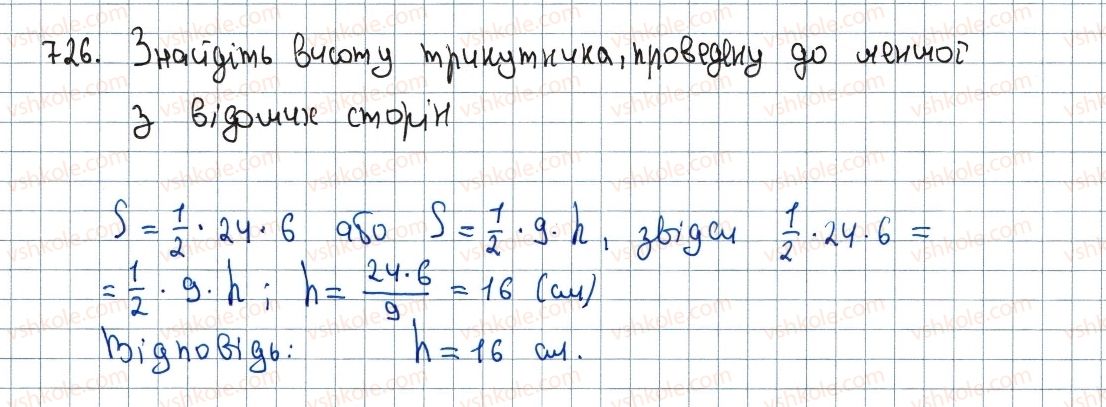 726. Знайдіть висоту трикутника, проведену до меншої
з відомих сторін
S = 1/2 · 24 · 6 або S = 1/2 · 9 · h, звідси 1/2 · 24 · 6 =
= 1/2 · 9 · h; h = 24·6/9 = 16 (см)
Відповідь: h = 16 см.